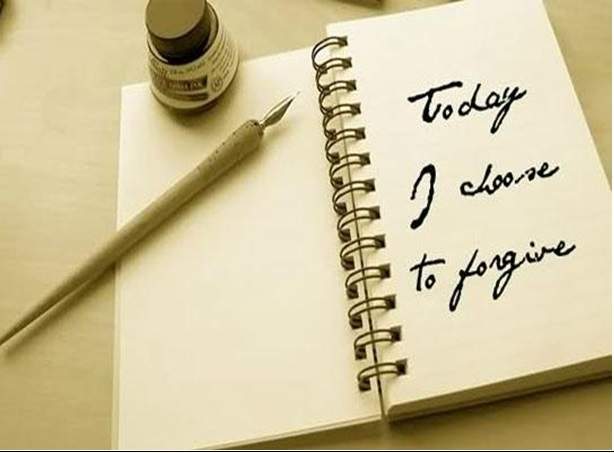 Today
I choose
to forgive